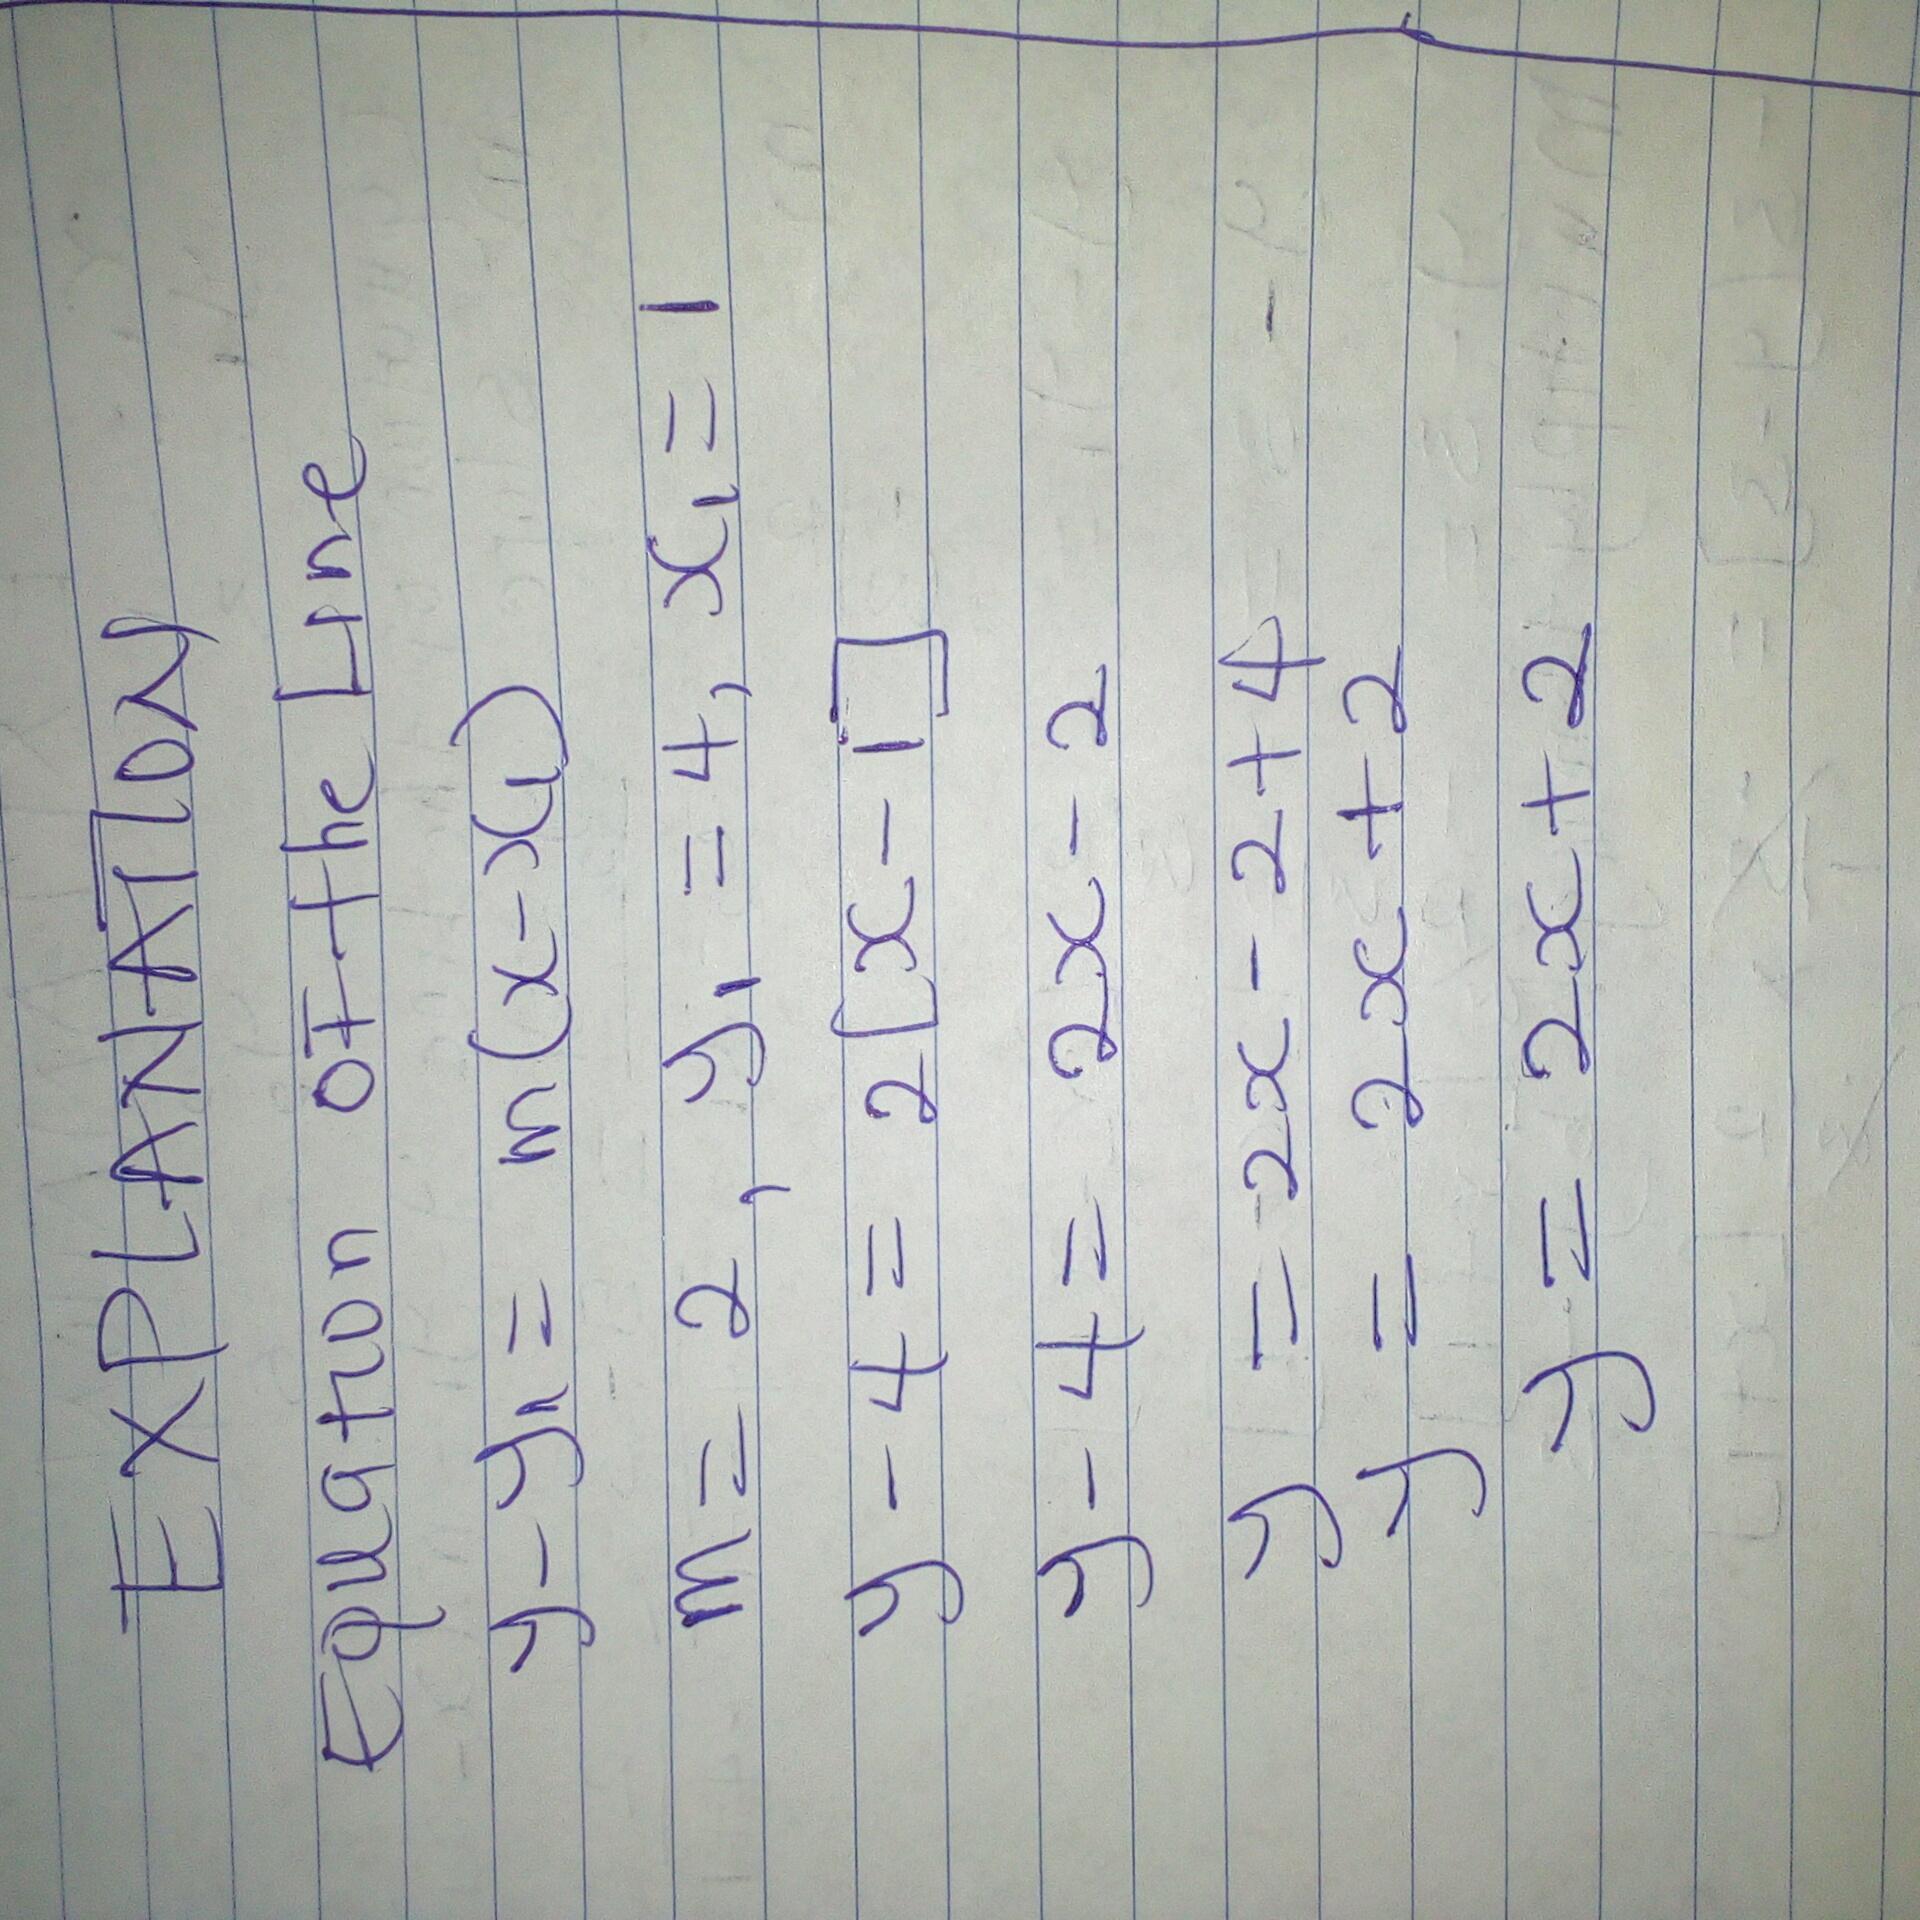 EXPLANATION
Equation of the Line
y-y₁ = m(x-x₁)
m = 2, y₁ = 4, x₁ = 1
y - 4 = 2[x - 1]
y - 4 = 2x - 2
y = 2x - 2 + 4
y = 2x + 2
y = 2x + 2